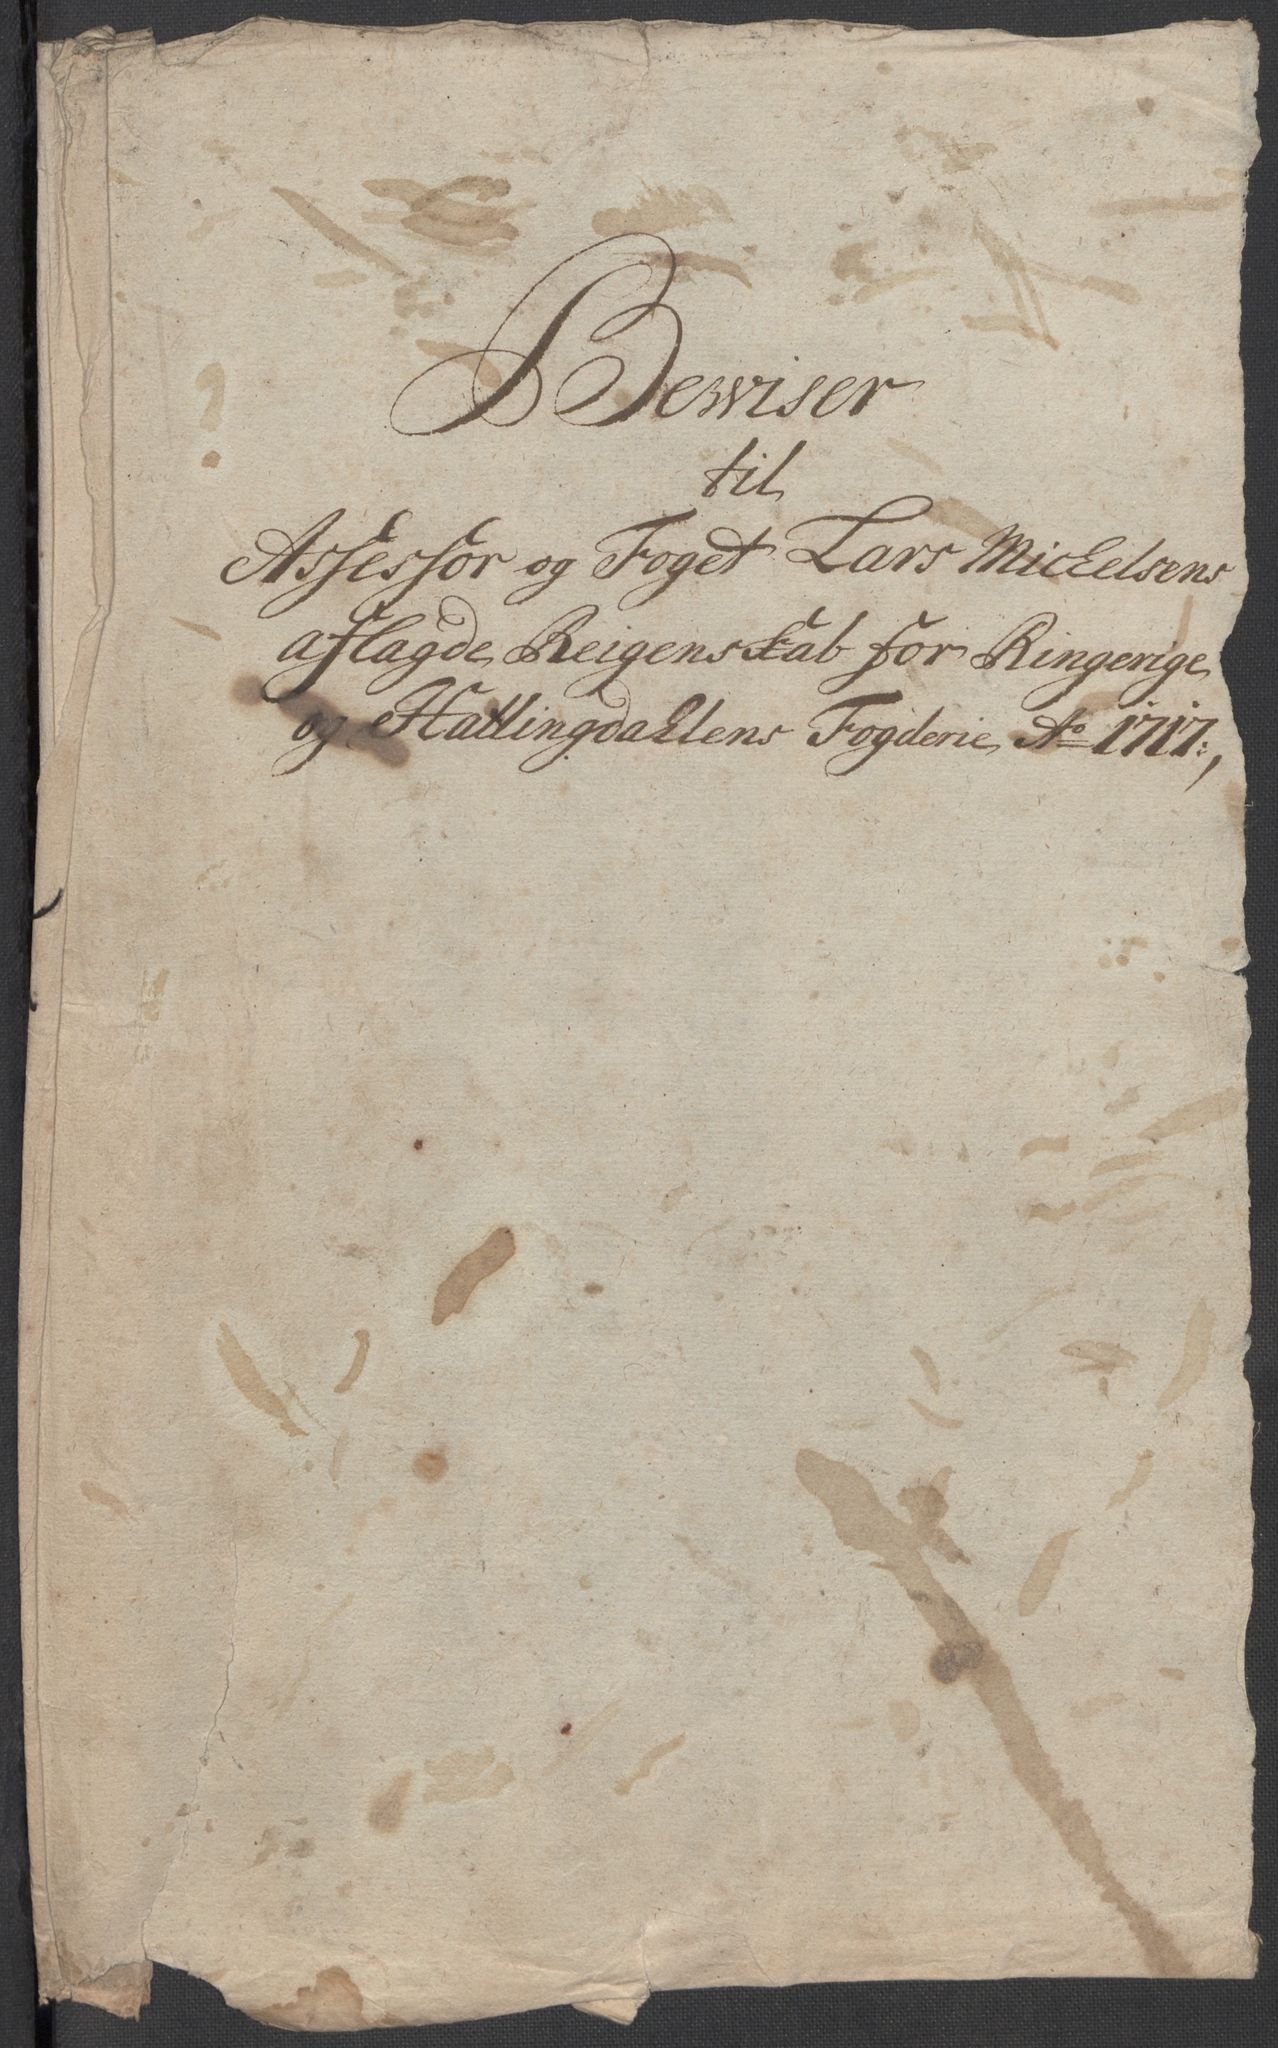 Bewiser
til
Assessor og Foget Lars Mickelsens
aflagde Reigenskab for Ringerige
og Hallingdahlens Fogderie Ao 1717:,